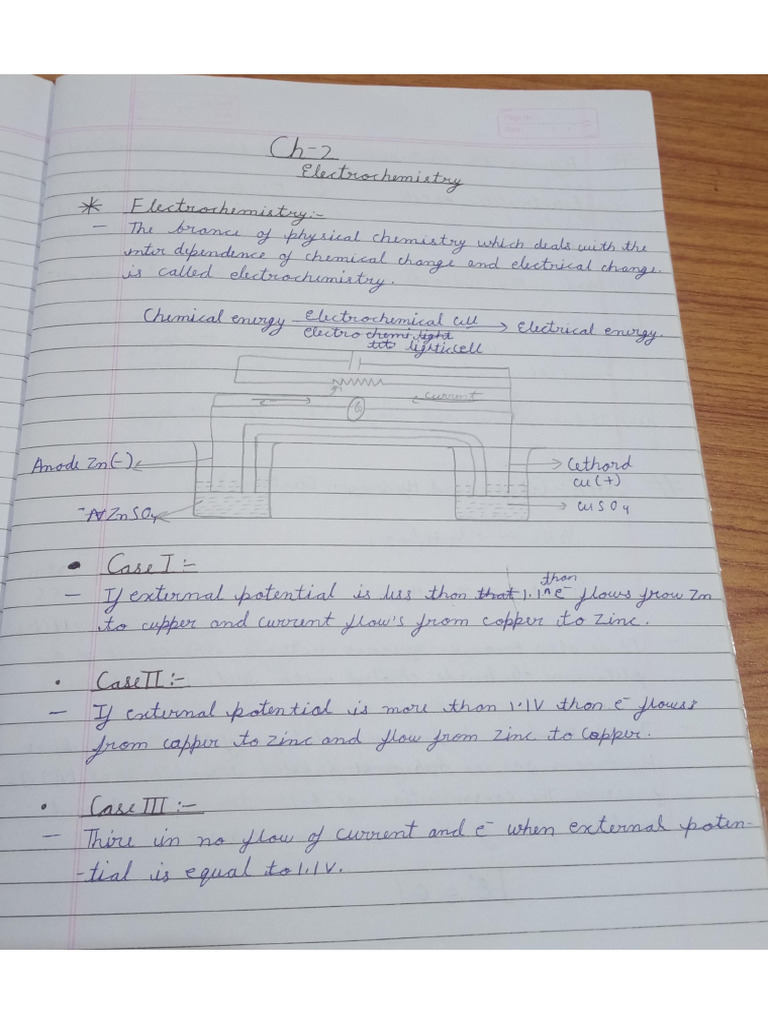 Ch-2
Electrochemistry
* Electrochemistry:-
- The brance of physical chemistry which deals with the
inter dependence of chemical change and electrical change.
is called electrochemistry.
Chemical energy Electrochemical cell → Electrical energy.
electro chemi light
lightic cell
current
G
Anode Zn(-)
Cethord
cu (+)
ZnSO4
CuSO4
• Case I :-
than
- If external potential is less than that 1.1 e- flows from Zn
to cupper and current flow's from copper to zinc.
• Case II :-
- If external potential is more than 1.1V than e- flowss
from copper to zinc and flow from zinc to copper.
• Case III :-
- Thire in no flow of current and e- when external poten-
-tial is equal to 1.1V.